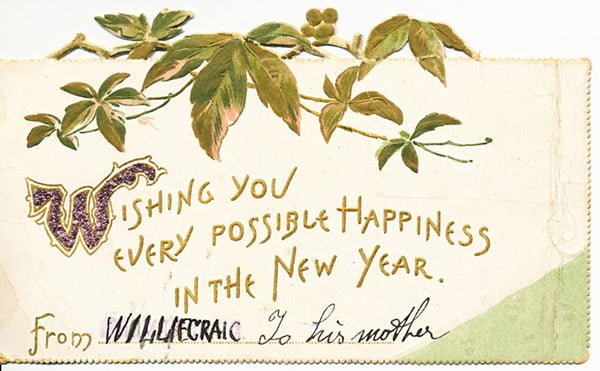 WISHING YOU
EVERY POSSIBLE HAPPINESS
IN THE NEW YEAR.
From WILLIECRAIC To his mother